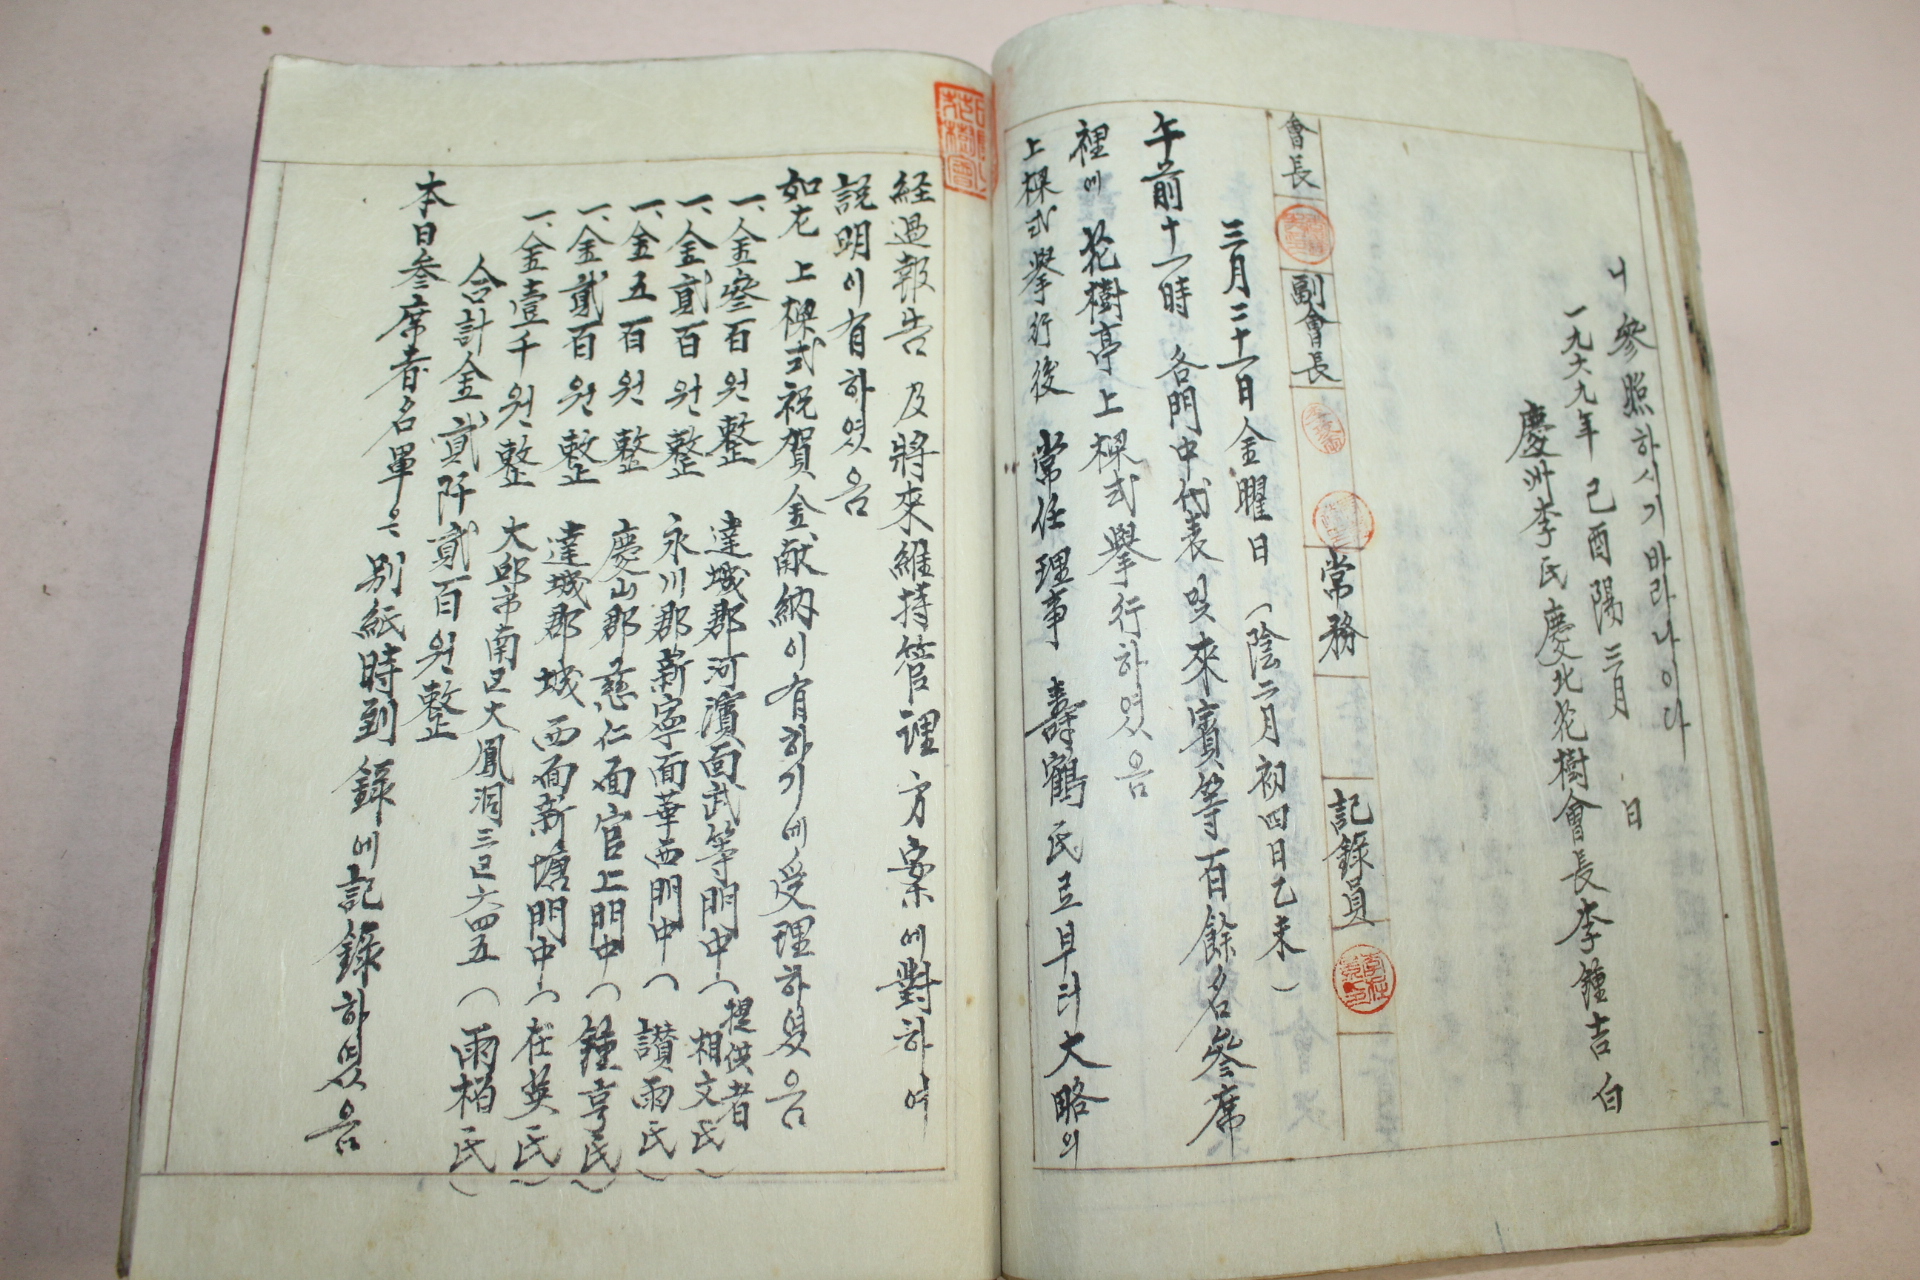 니 參照하시기바라나이다
一九六九年 己酉陽三月 日
慶州李氏慶北花樹會長 李鍾吉 白
會長 副會長 常務 記錄員
三月二十一日金曜日 (陰二月初四日乙未)
午前十一時 各門中代表 및 來賓等百餘名參席
裡에 花樹亭上樑式擧行하였음
上樑式擧行後 常任理事 壽鶴氏로부터 大略의
経過報告 及 將來維持管理方案에對하여
說明이有하였음
如左 上樑式祝賀金献納이有하기에受理하였음
一、金參百원整 達城郡河濱面武等門中(提供者 相文氏)
一、金貳百원整 永川郡新寧面華西門中(讃雨氏)
一、金五百원整 慶山郡慈仁面官上門中(鍾亨氏)
一、金貳百원整 達城郡城西面新塘門中(在英氏)
一、金壹千원整 大邱市南區大鳳洞三區六四五(雨栢氏)
合計金貳阡貳百원整
本日參席者名單은 別紙時到錄에記錄하였음
花樹會